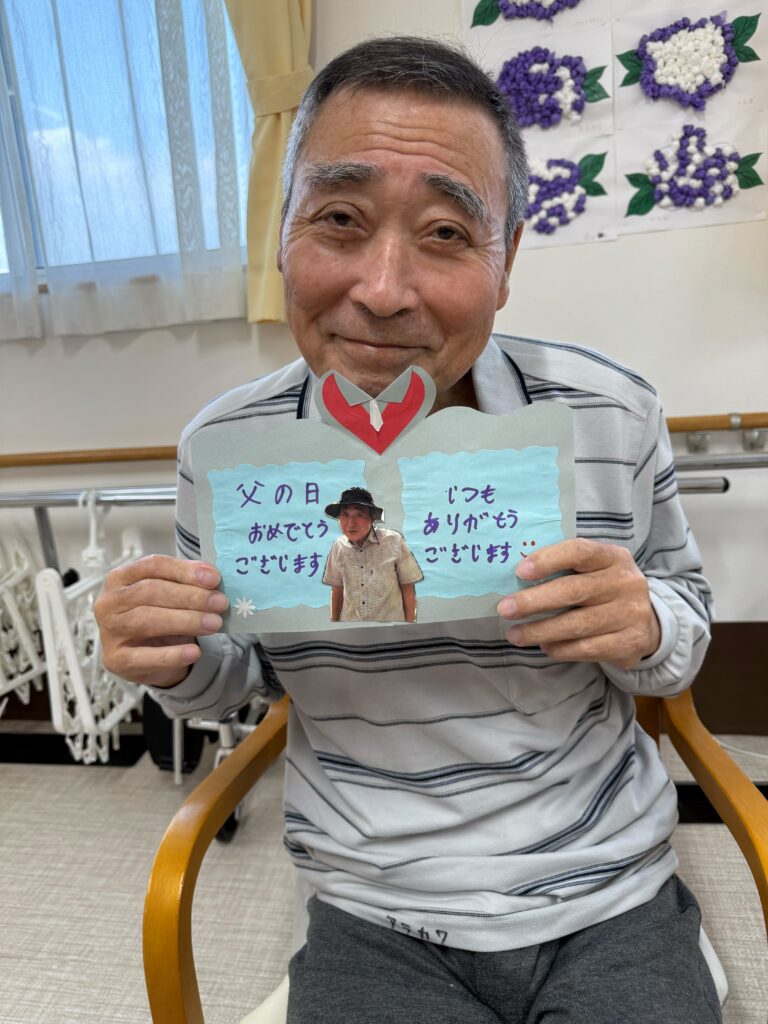 父の日
おめでとう
ございます
いつも
ありがとう
ございます
アラカワ